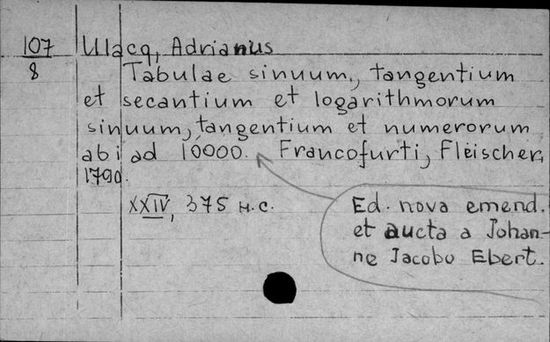 107
8
Ulacq, Adrianus
Tabulae sinuum, tangentium
et secantium et logarithmorum
sinuum, tangentium et numerorum
ab i ad 10000. Francofurti, Fleischer,
1790.
XXIV, 375 н.с.
Ed. nova emend.
et aucta a Johan-
ne Jacobo Ebert.